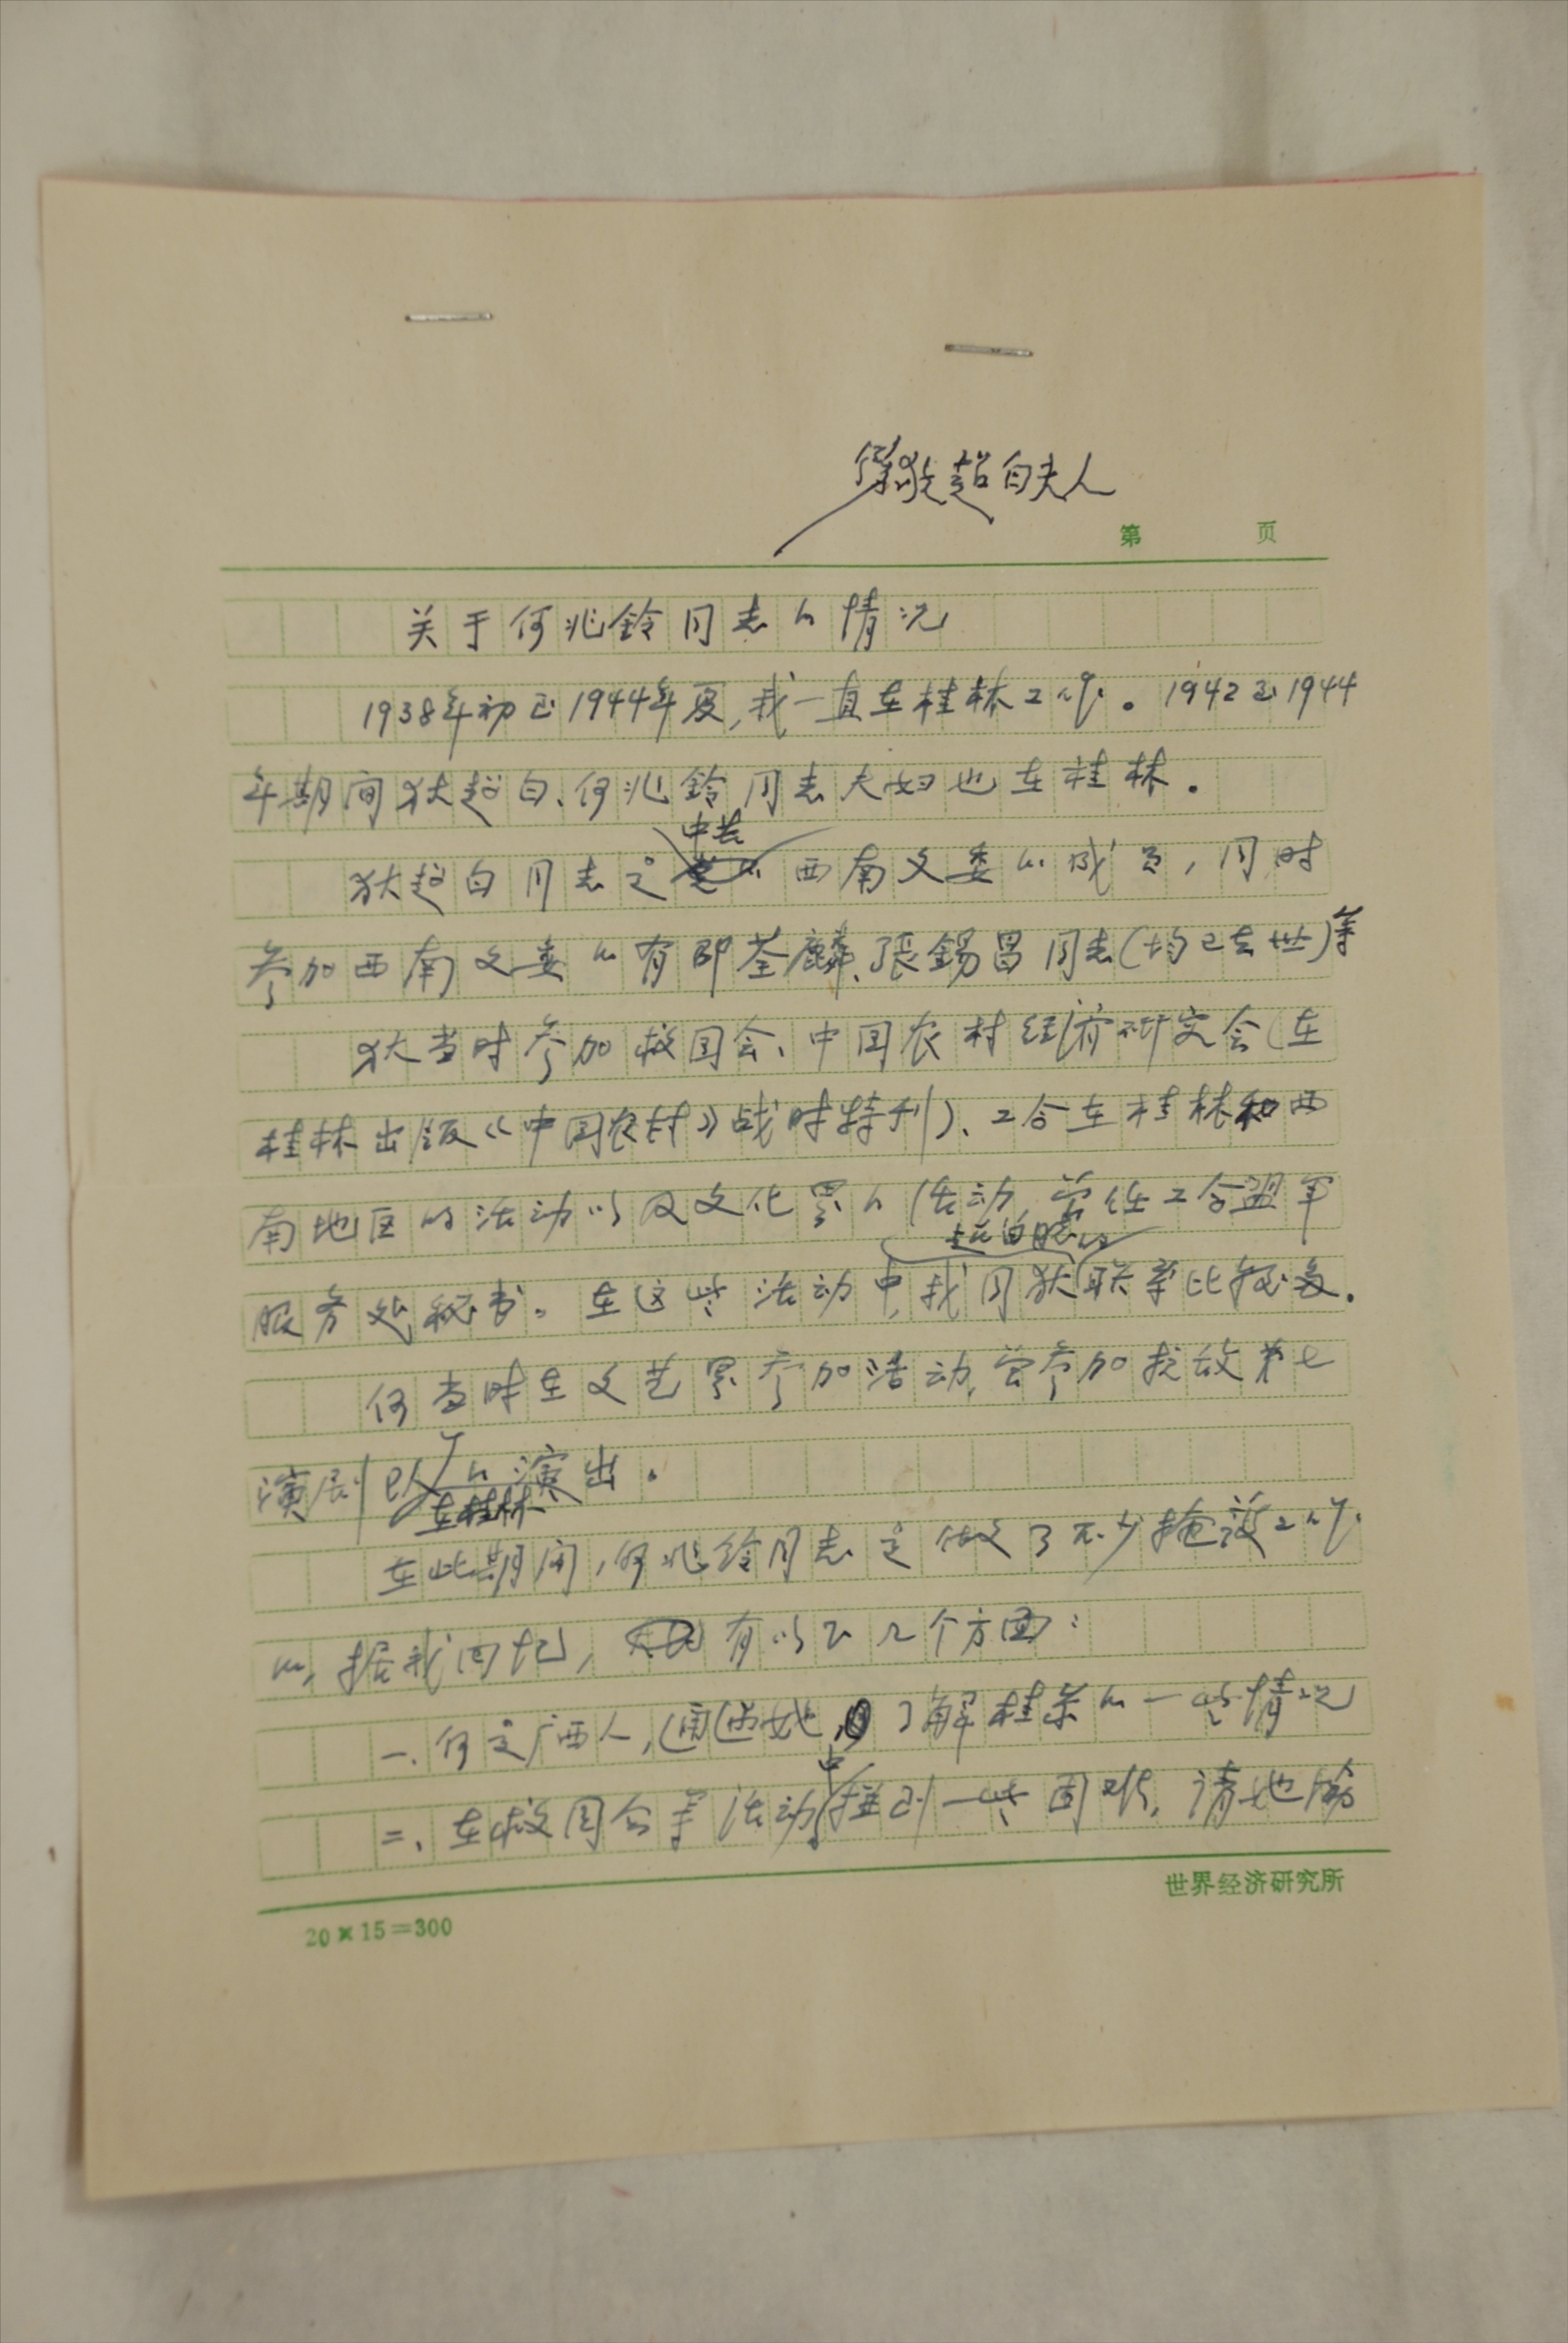 係狄超白夫人
第 页
关于何兆鈴同志的情况
1938年初至1944年夏,我一直在桂林工作。1942至1944
年期间狄超白、何兆鈴同志夫妇也在桂林.
中共
狄超白同志是西南文委的成员,同时
参加西南文委的有邵荃麟、張錫昌同志(均已去世)等
狄当时参加救国会、中国农村经济研究会(在
桂林出版《中国农村》战时特刊)、工合在桂林和西
南地区的活动以及文化界的活动,曾任工合盟军
超白
服务处秘书。在这些活动中,我同狄联系比较多.
何当时在文艺界参加活动,曾参加抗敌第七
演剧队的演出.
在桂林
在此期间,何兆鈴同志是做了不少掩护工作
的,据我回忆,有以下几个方面:
一.何是广西人,通过她,了解桂系的一些情况
中
二.在救国会等活动碰到一些困难,请她协
世界经济研究所
20×15=300